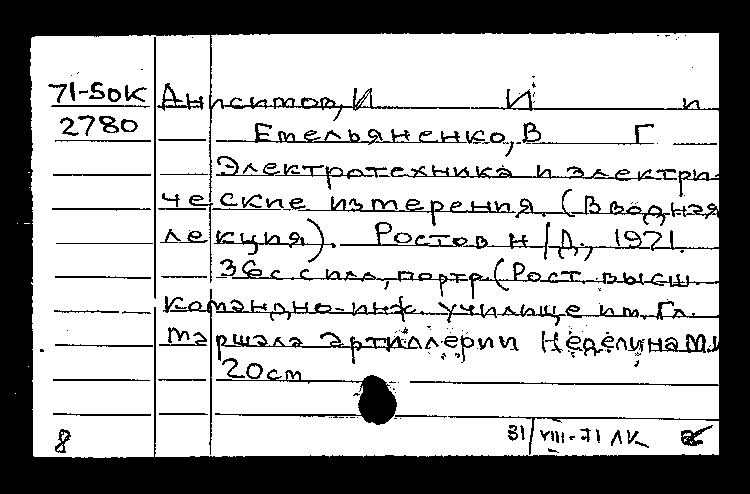 71-50К Анисимов, И И и
2780 Емельяненко, В Г
Электротехника и электри-
ческие измерения. (Вводная
лекция). Ростов н/Д., 1971.
36с. с илл., портр. (Рост. высш.
командно-инж. училище им. Гл.
маршала артиллерии Неделина М.И
20см
8 31/VIII-71 ЛК